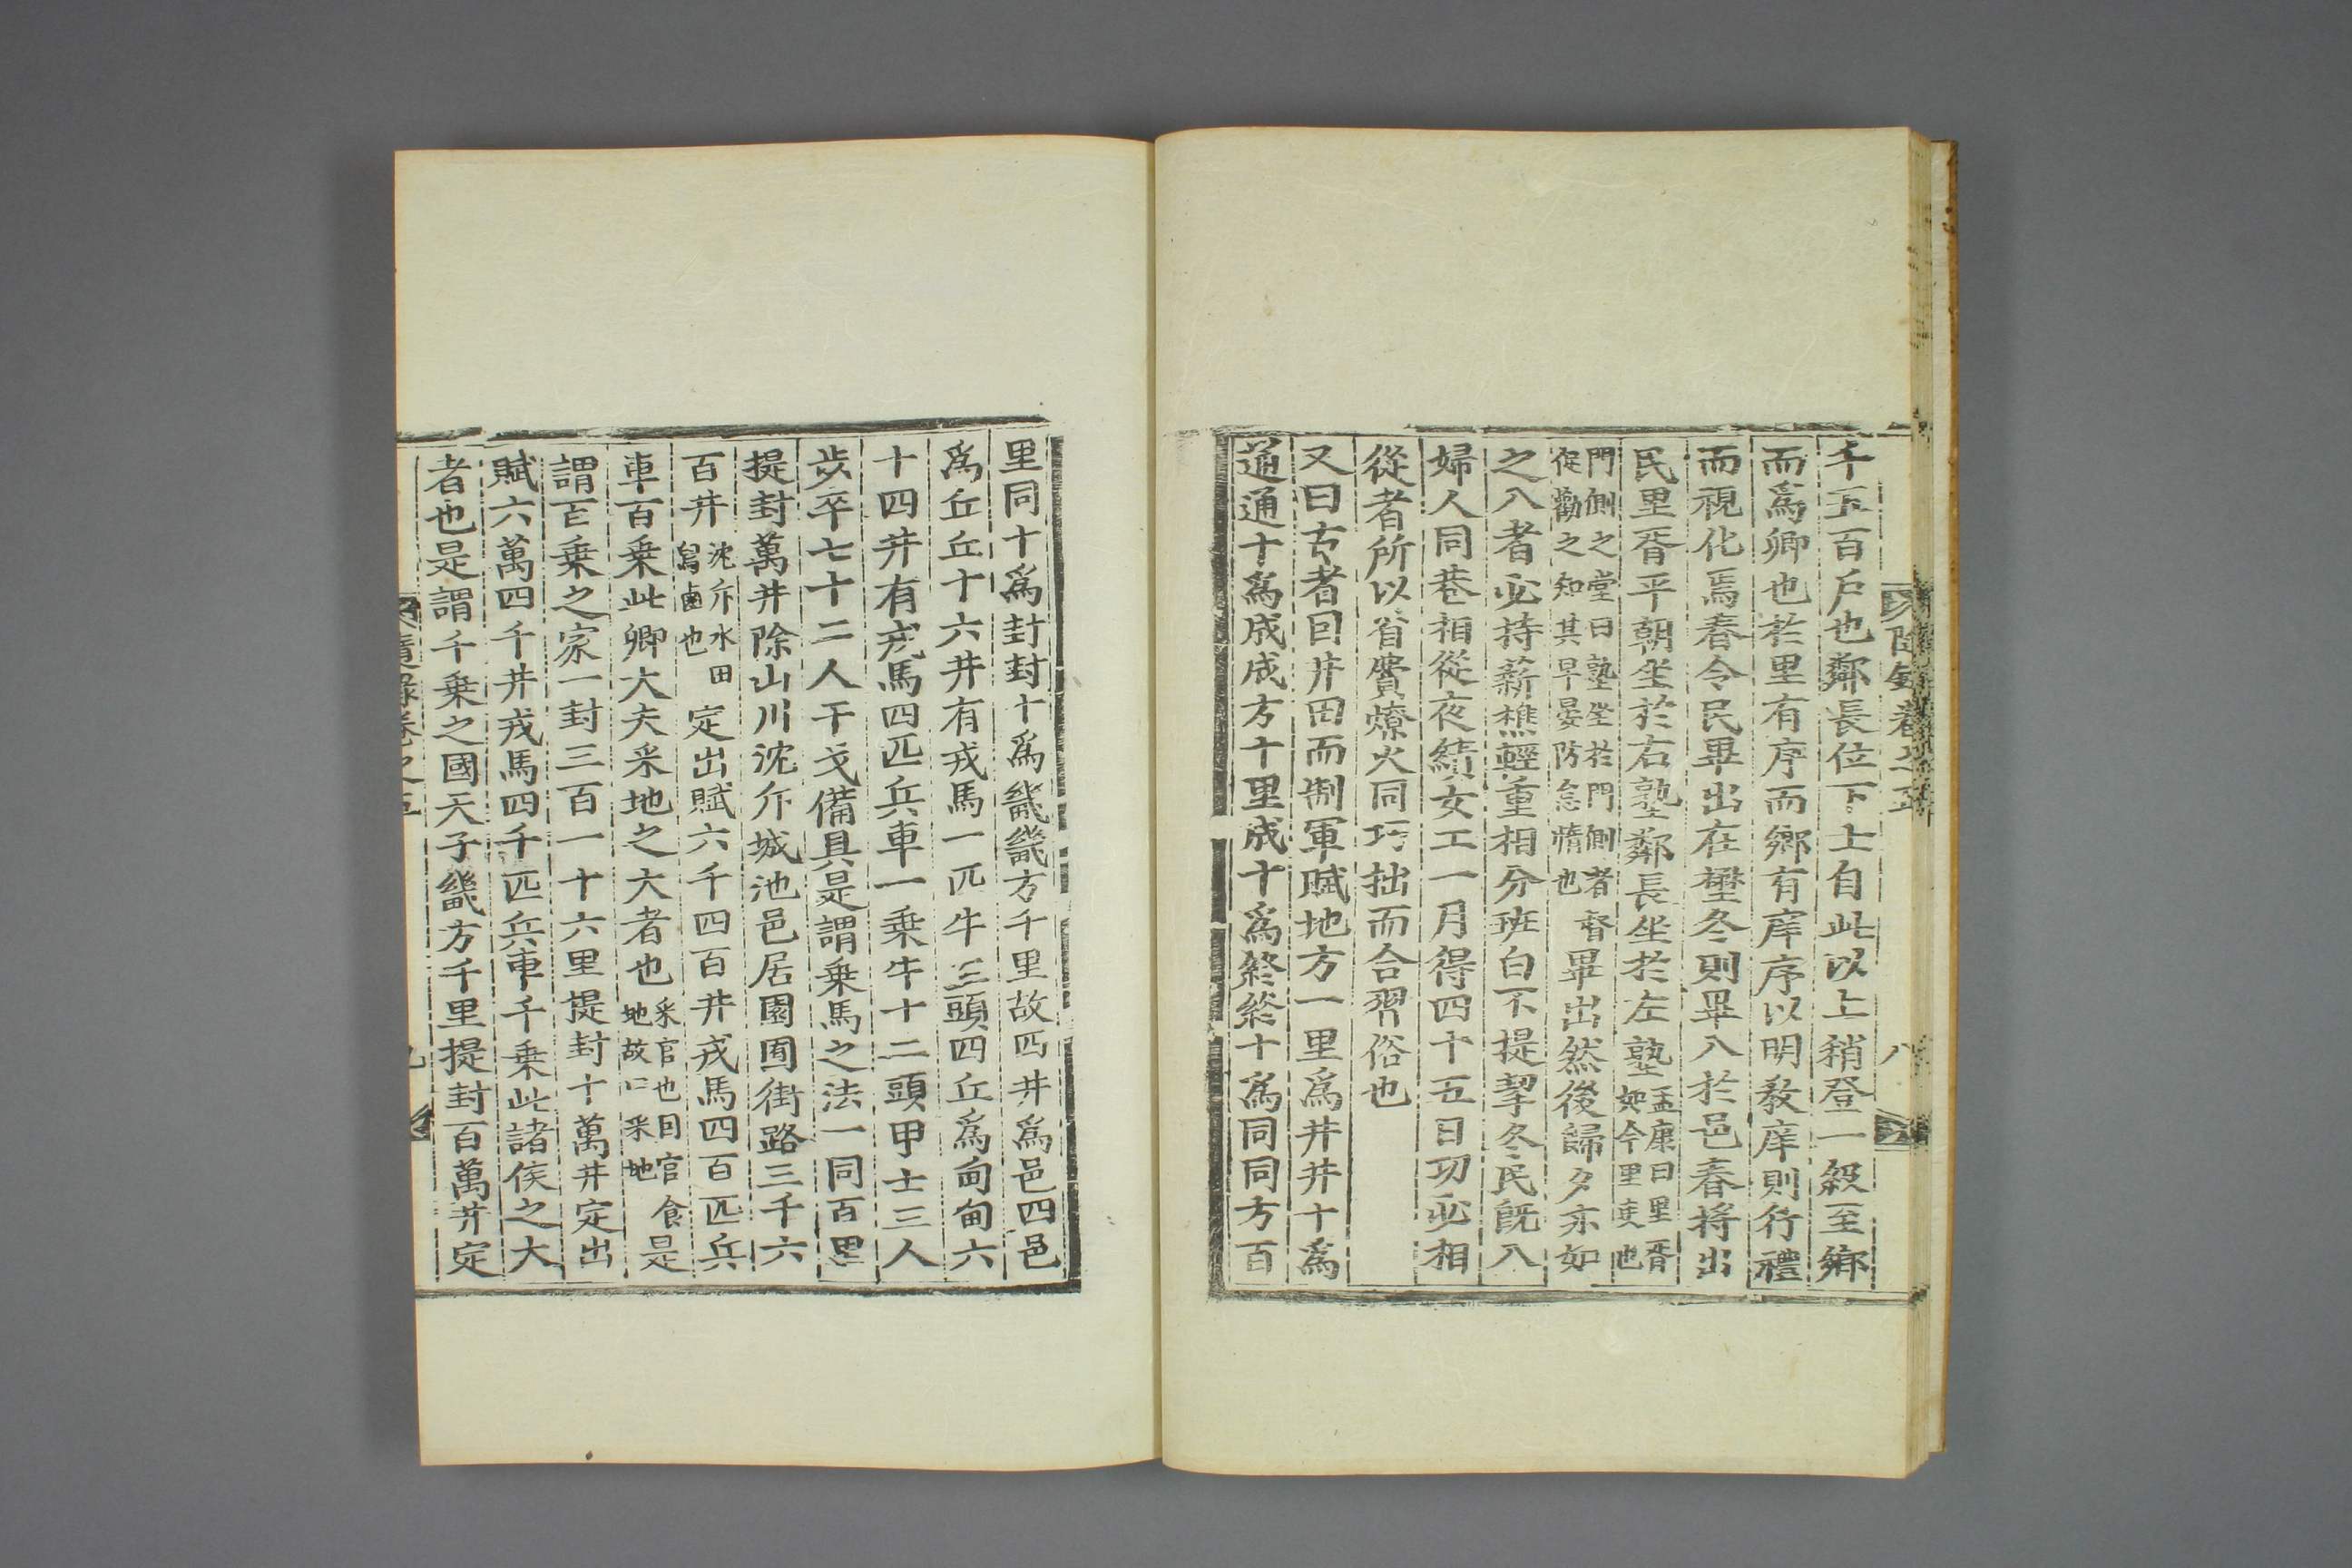 千五百戶也鄰長位下士自此以上稍登一級至鄉
而爲卿也於里有序而鄉有庠序以明教庠則行禮
而視化焉春令民畢出在壄冬則畢入於邑春將出
民里胥平朝坐於右塾鄰長坐於左塾孟康曰里胥如今里吏也
門側之堂曰塾坐於門側者督促勸之知其早晏防怠惰也畢出然後歸夕亦如
之入者必持薪樵輕重相分班白不提挈冬民旣入
婦人同巷相從夜績女工一月得四十五日功必相
從者所以省費燎火同巧拙而合習俗也
又曰古者因井田而制軍賦地方一里爲井井十爲
通通十爲成成方十里成十爲終終十爲同同方百
里同十爲封封十爲畿畿方千里故四井爲邑四邑
爲丘丘十六井有戎馬一匹牛三頭四丘爲甸甸六
十四井有戎馬四匹兵車一乗牛十二頭甲士三人
步卒七十二人干戈備具是謂乗馬之法一同百里
提封萬井除山川沈斥城池邑居園囿街路三千六
百井沈斥水田舃鹵也定出賦六千四百井戎馬四百匹兵
車百乗此卿大夫采地之大者也采官也因官食地故曰采地是
謂百乗之家一封三百一十六里提封十萬井定出
賦六萬四千井戎馬四千匹兵車千乗此諸侯之大
者也是謂千乗之國天子畿方千里提封百萬井定